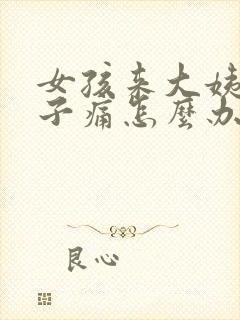 女孩来大姨
子痛怎麼办
良心